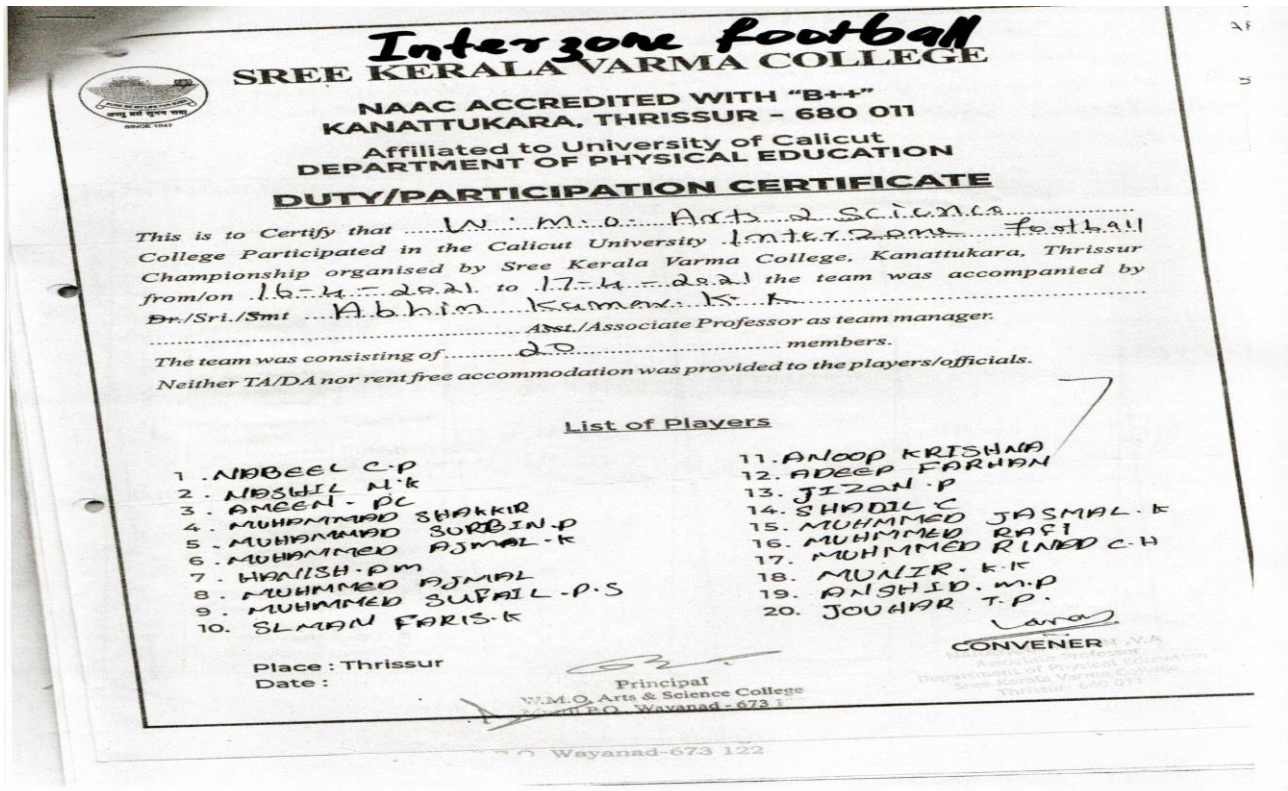 Interzone football
SREE KERALA VARMA COLLEGE
NAAC ACCREDITED WITH "B++"
KANATTUKARA, THRISSUR - 680 011
Affiliated to University of Calicut
DEPARTMENT OF PHYSICAL EDUCATION
DUTY/PARTICIPATION CERTIFICATE
This is to Certify that W.M.O. Arts & Science
College Participated in the Calicut University Interzone football
Championship organised by Sree Kerala Varma College, Kanattukara, Thrissur
from/on 16-4-2021 to 17-4-2021 the team was accompanied by
Dr./Sri./Smt Abhin Kumar K. K
Asst./Associate Professor as team manager.
The team was consisting of 20 members.
Neither TA/DA nor rent free accommodation was provided to the players/officials.
List of Players
1. NABEEL C.P
2. NASWIL N.K
3. AMEEN - PC
4. MUHAMMAD SHAKKIR
5. MUHAMMAD SURBIN.P
6. MUHAMMED AJMAL.K
7. HANISH.PM
8. MUHMMED AJMAL
9. MUHMMED SUFAIL.P.S
10. SLMAN FARIS.K
11. ANOOP KRISHNA
12. ADEEP FARHAN
13. JIZON.P
14. SHADIL C
15. MUHMMED JASMAL.K
16. MUHMMED RAFI
17. MUHMMED RINAD C.H
18. MUNIR.K.K
19. ANSHID.M.P
20. JOUHAR T.P.
Place : Thrissur
Date :
Principal
W.M.O. Arts & Science College
P.O., Wayanad - 673 1
CONVENER
V.A
Associate Professor
Department of Physical Education
Sree Kerala Varma College
Thrissur - 680 011
Wayanad-673 122